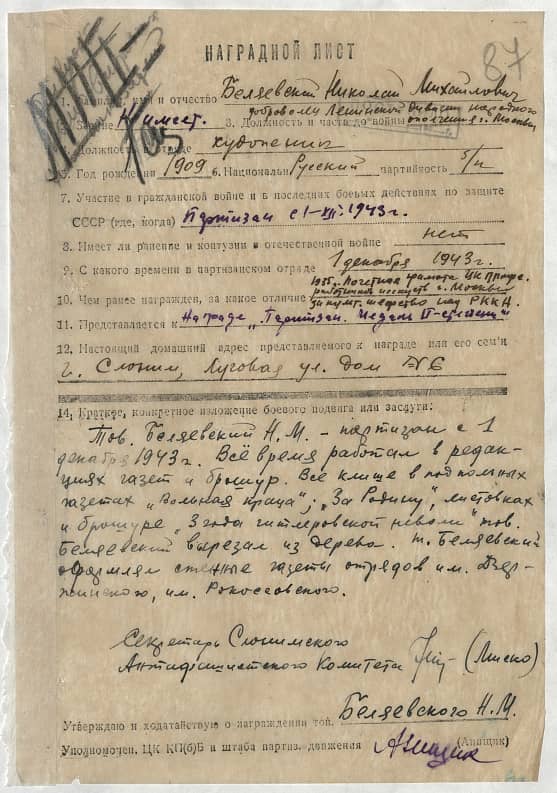 87
НАГРАДНОЙ ЛИСТ
1. Фамилия, имя и отчество Беляевский Николай Михайлович
2. Звание Не имеет. 3. Должность и часть до войны добровол. Ленинской дивизии народного ополчения г. Москвы
4. Должность в отряде художник
5. Год рождения 1909 6. Националън. Русский партийность б/п
7. Участие в гражданской войне и в последних боевых действиях по защите
СССР (где, когда) Партизан с 1-XII-1943 г.
8. Имеет ли ранение и контузии в отечественной войне нет
9. С какого времени в партизанском отряде 1 декабря 1943 г.
1935 г. Почетная грамота ЦК Профс.
работников искусств г. Москвы
10. Чем ранее награжден, за какое отличие за культ. шефство над РККА.
11. Представляется к Награде „Партизан. медаль II-степени"
12. Настоящий домашний адрес представляемого к награде или его семьи
г. Слоним, Луговая ул. Дом №6
14. Краткое, конкретное изложение боевого подвига или заслуги:
Тов. Беляевский Н.М. - партизан с 1
декабря 1943 г. Всё время работал в редак-
циях газет и брошюр. Все клише в подпольных
газетах „Вольная праца"; „За Родину", листовках
и брошюре „3 года гитлеровской неволи" тов.
Беляевский вырезал из дерева. т. Беляевский
оформлял стенные газеты отрядов им. Дзер-
жинского, им. Рокоссовского.
Секретарь Слонимского
Антифашистского Комитета (Лиско)
Утверждаю и ходатайствую о награждении тов. Беляевского Н.М.
Уполномочен. ЦК КП(б)Б и штаба партиз. движения (Анищик)